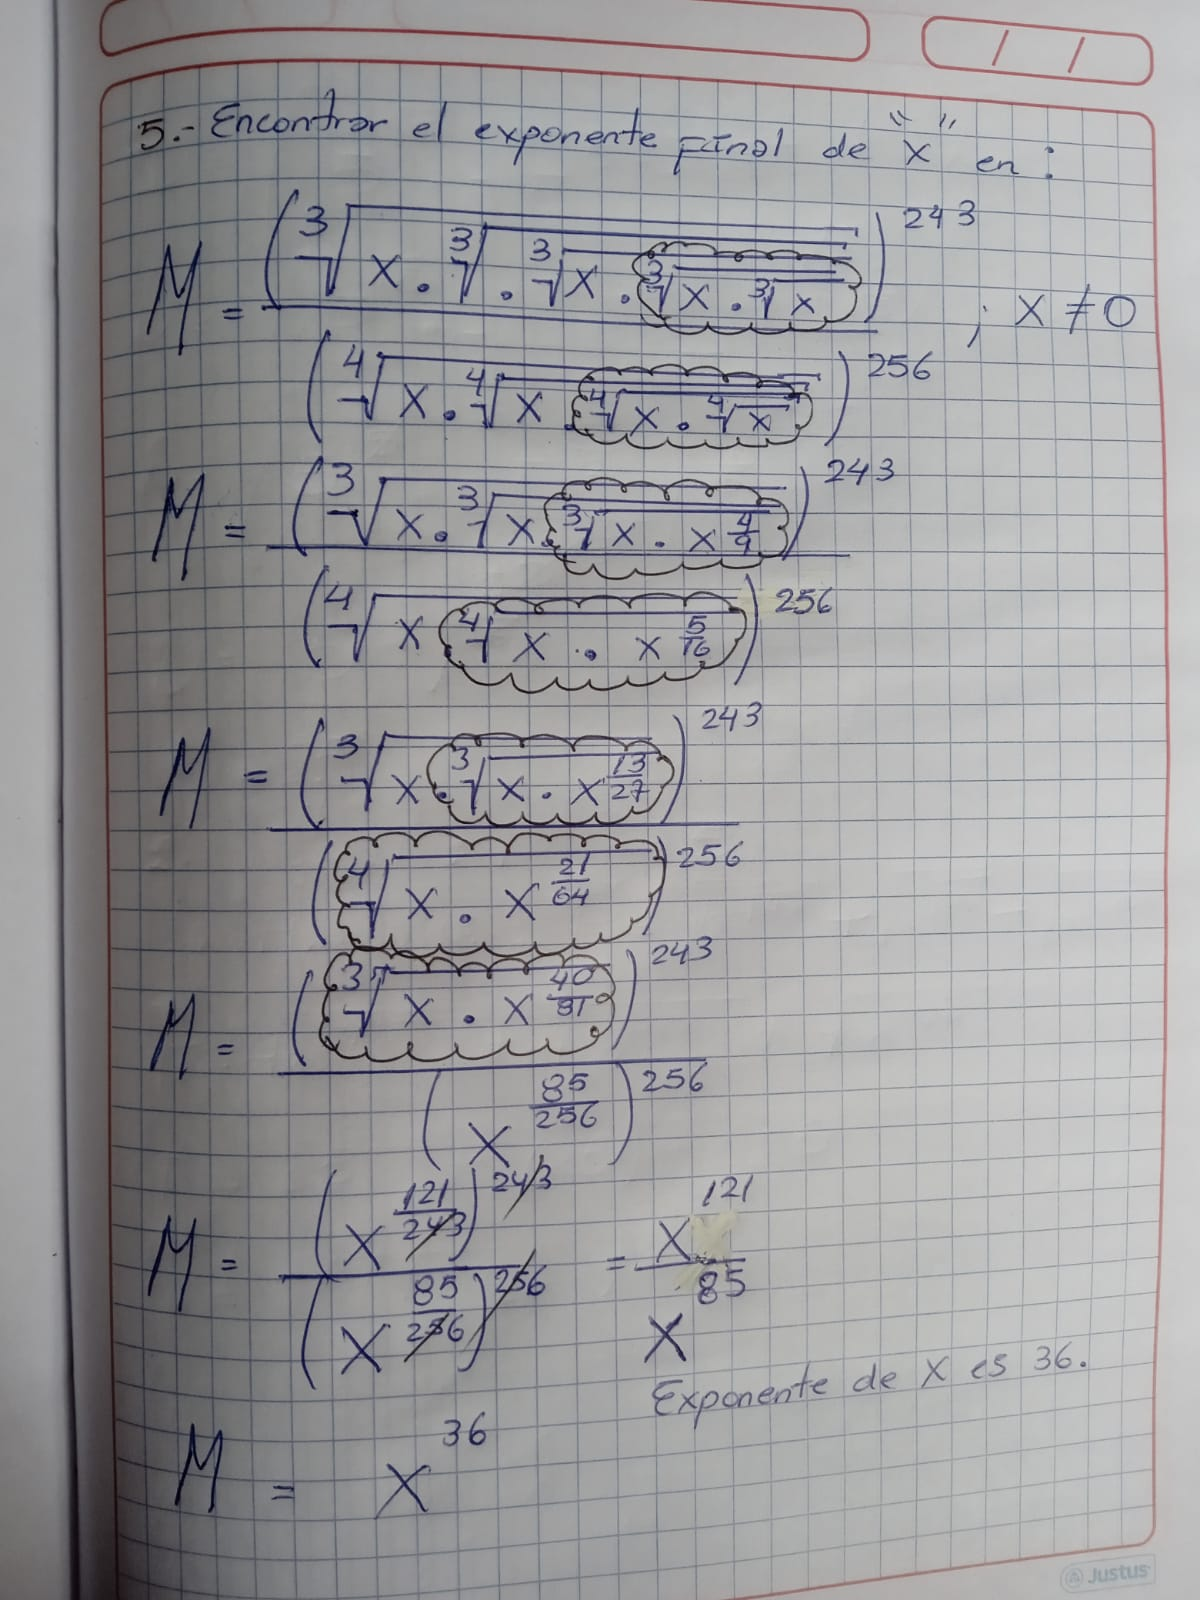 / /
5.- Encontrar el exponente final de "x" en:
M = (∛(x · ∛( · ∛(x · ∛(x · ∛x)))))^243 / (∜(x · ∜(x · ∜(x · ∜x))))^256 ; x ≠ 0
M = (∛(x · ∛(x · ∛(x · x^(4/9)))))^243 / (∜(x ∜(x · x^(5/16))))^256
M = (∛(x · ∛(x · x^(13/27))))^243 / (∜(x · x^(21/64)))^256
M = (∛(x · x^(40/81)))^243 / (x^(85/256))^256
M = (x^(121/243))^243 / (x^(85/256))^256 = x^121 / x^85
Exponente de x es 36.
M = x^36
Justus